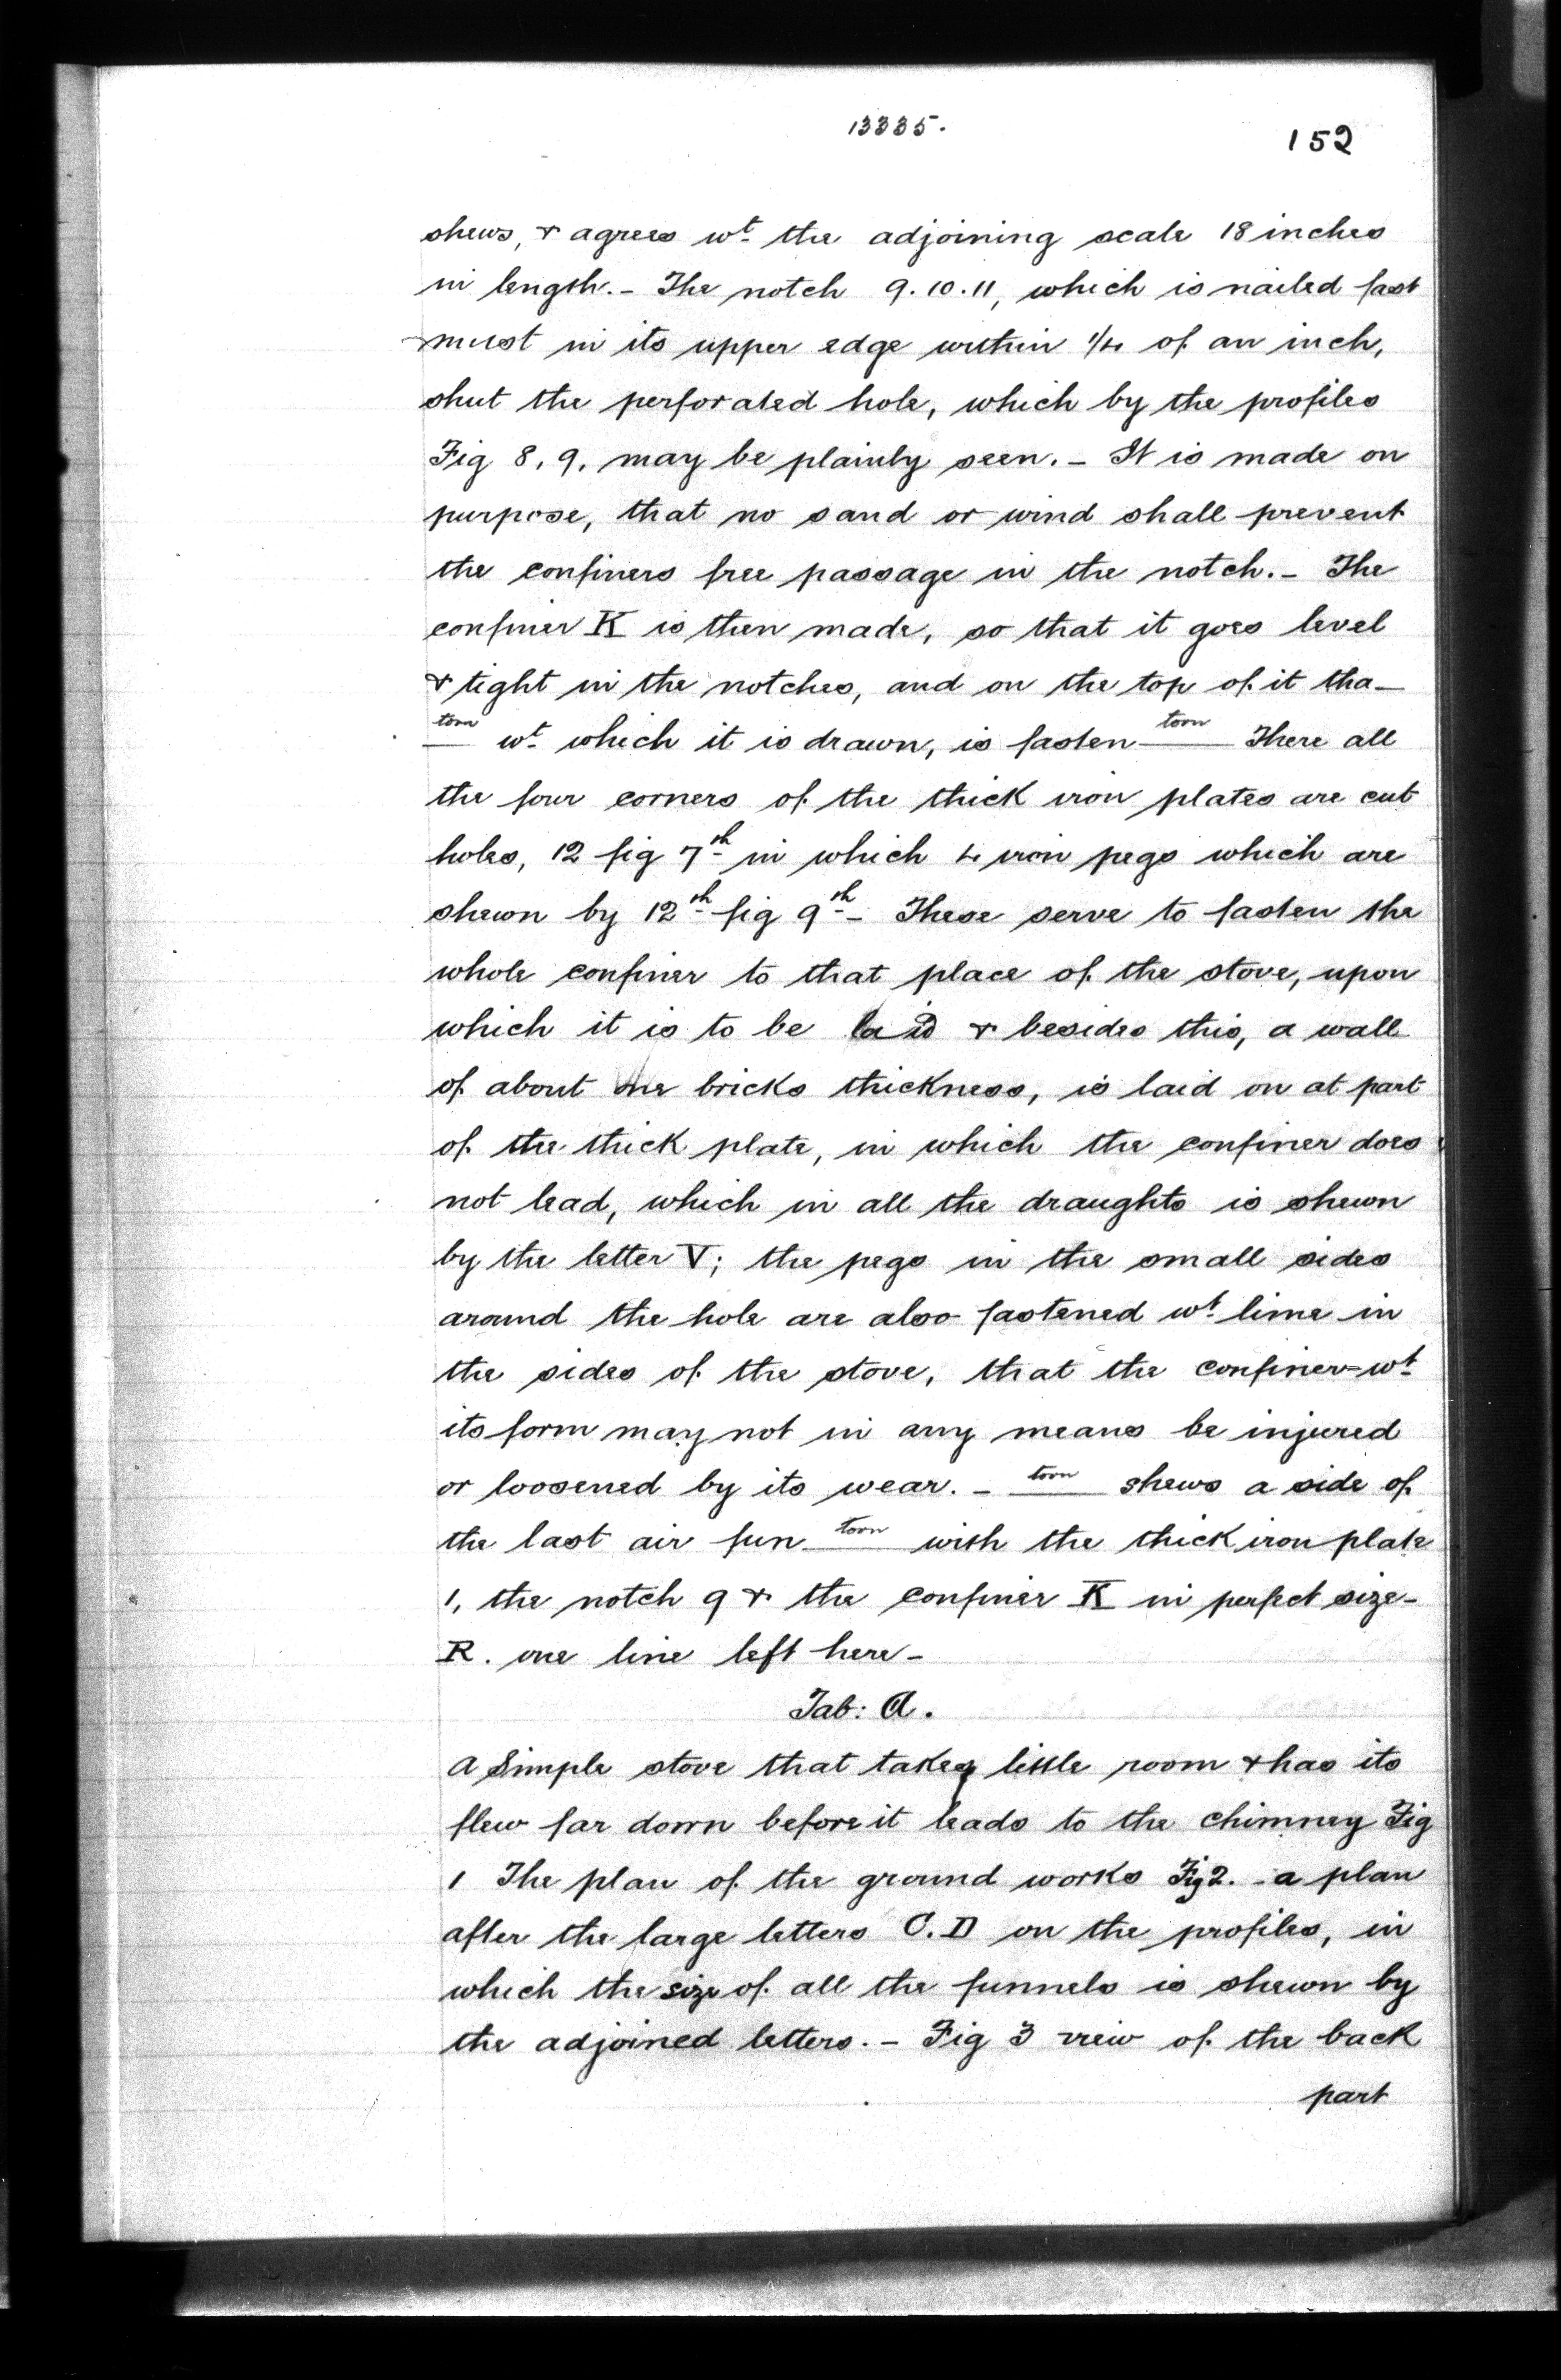 13335.
152
shews, & agrees wt the adjoining scale 18 inches
in length. - The notch 9. 10. 11, which is nailed fast
must in its upper edge within 1/4 of an inch,
shut the perforated hole, which by the profiles
Fig 8, 9, may be plainly seen. - It is made on
purpose, that no sand or wind shall prevent
the confiners free passage in the notch. - The
confiner K is then made, so that it goes level
& tight in the notches, and on the top of it tha-
torn wt which it is drawn, is fasten torn There all
the four corners of the thick iron plates are cut
holes, 12 fig 7th in which 4 iron pegs which are
shewn by 12th fig 9th - These serve to fasten the
whole confiner to that place of the stove, upon
which it is to be laid & besides this, a wall
of about one bricks thickness, is laid on at part
of the thick plate, in which the confiner does
not lead, which in all the draughts is shewn
by the letter V; the pegs in the small sides
around the hole are also fastened wt lime in
the sides of the stove, that the confiner=wt
its form may not in any means be injured
or loosened by its wear. - torn shews a side of
the last air fun torn with the thick iron plate
1, the notch 9 & the confiner K in perfect size-
R. one line left here -
Tab: A.
A Simple stove that takes little room & has its
flew far down before it leads to the chimney Fig
1 The plan of the ground works Fig 2. - a plan
after the large letters C. D on the profiles, in
which the size of all the funnels is shewn by
the adjoined letters. - Fig 3 view of the back
part